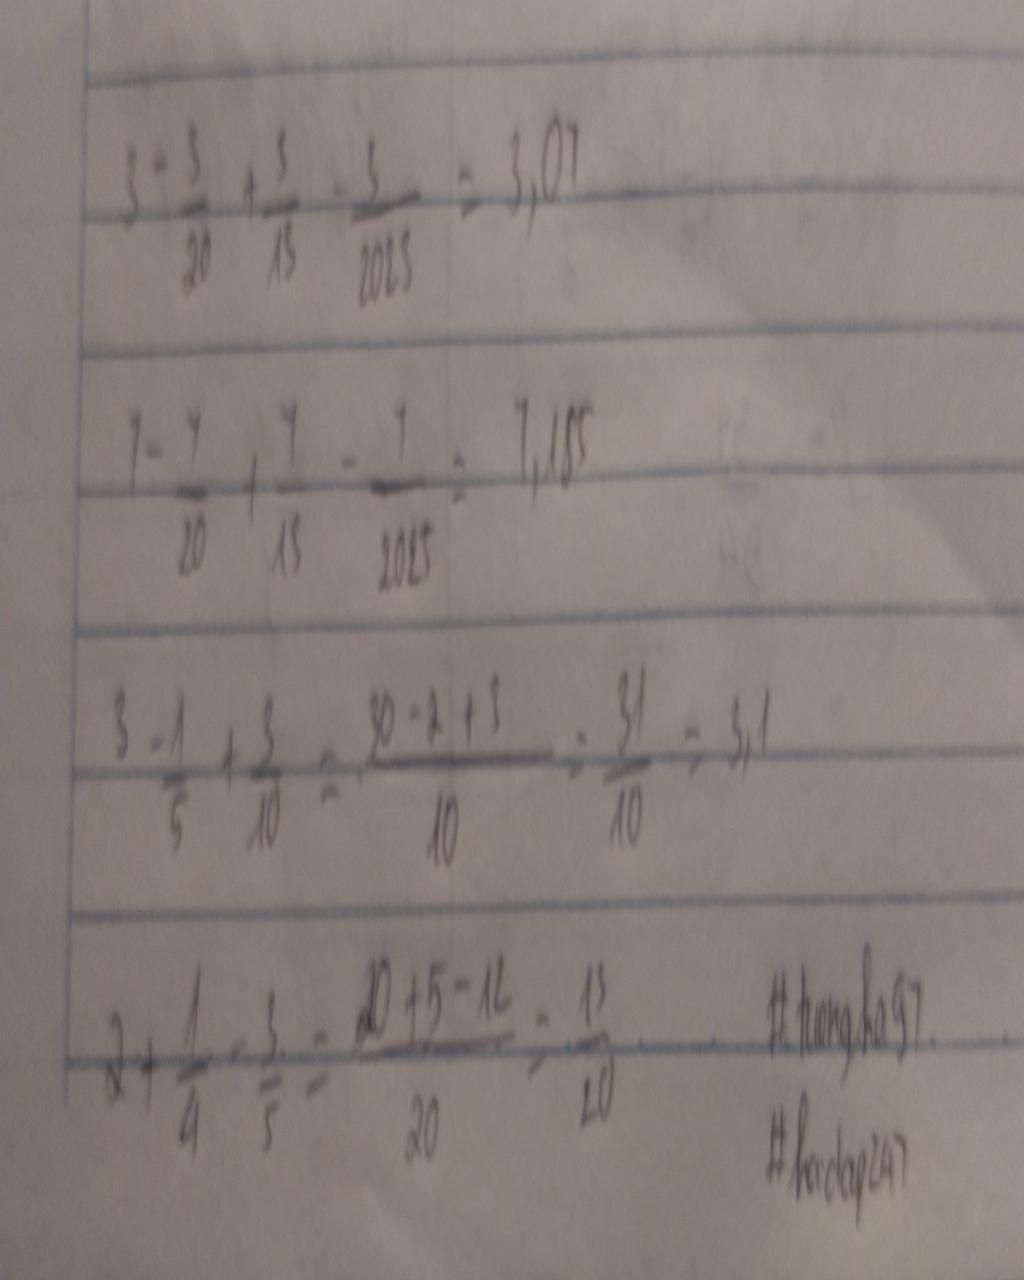 3 - 3/20 + 3/15 - 3/2025 = 3,07
7 - 7/20 + 7/15 - 7/2025 = 7,155
3 - 1/5 + 3/10 = (30 - 2 + 3)/10 = 31/10 = 3,1
2 + 1/4 - 3/5 = (20 + 5 - 12)/20 = 13/20
#hoidap247